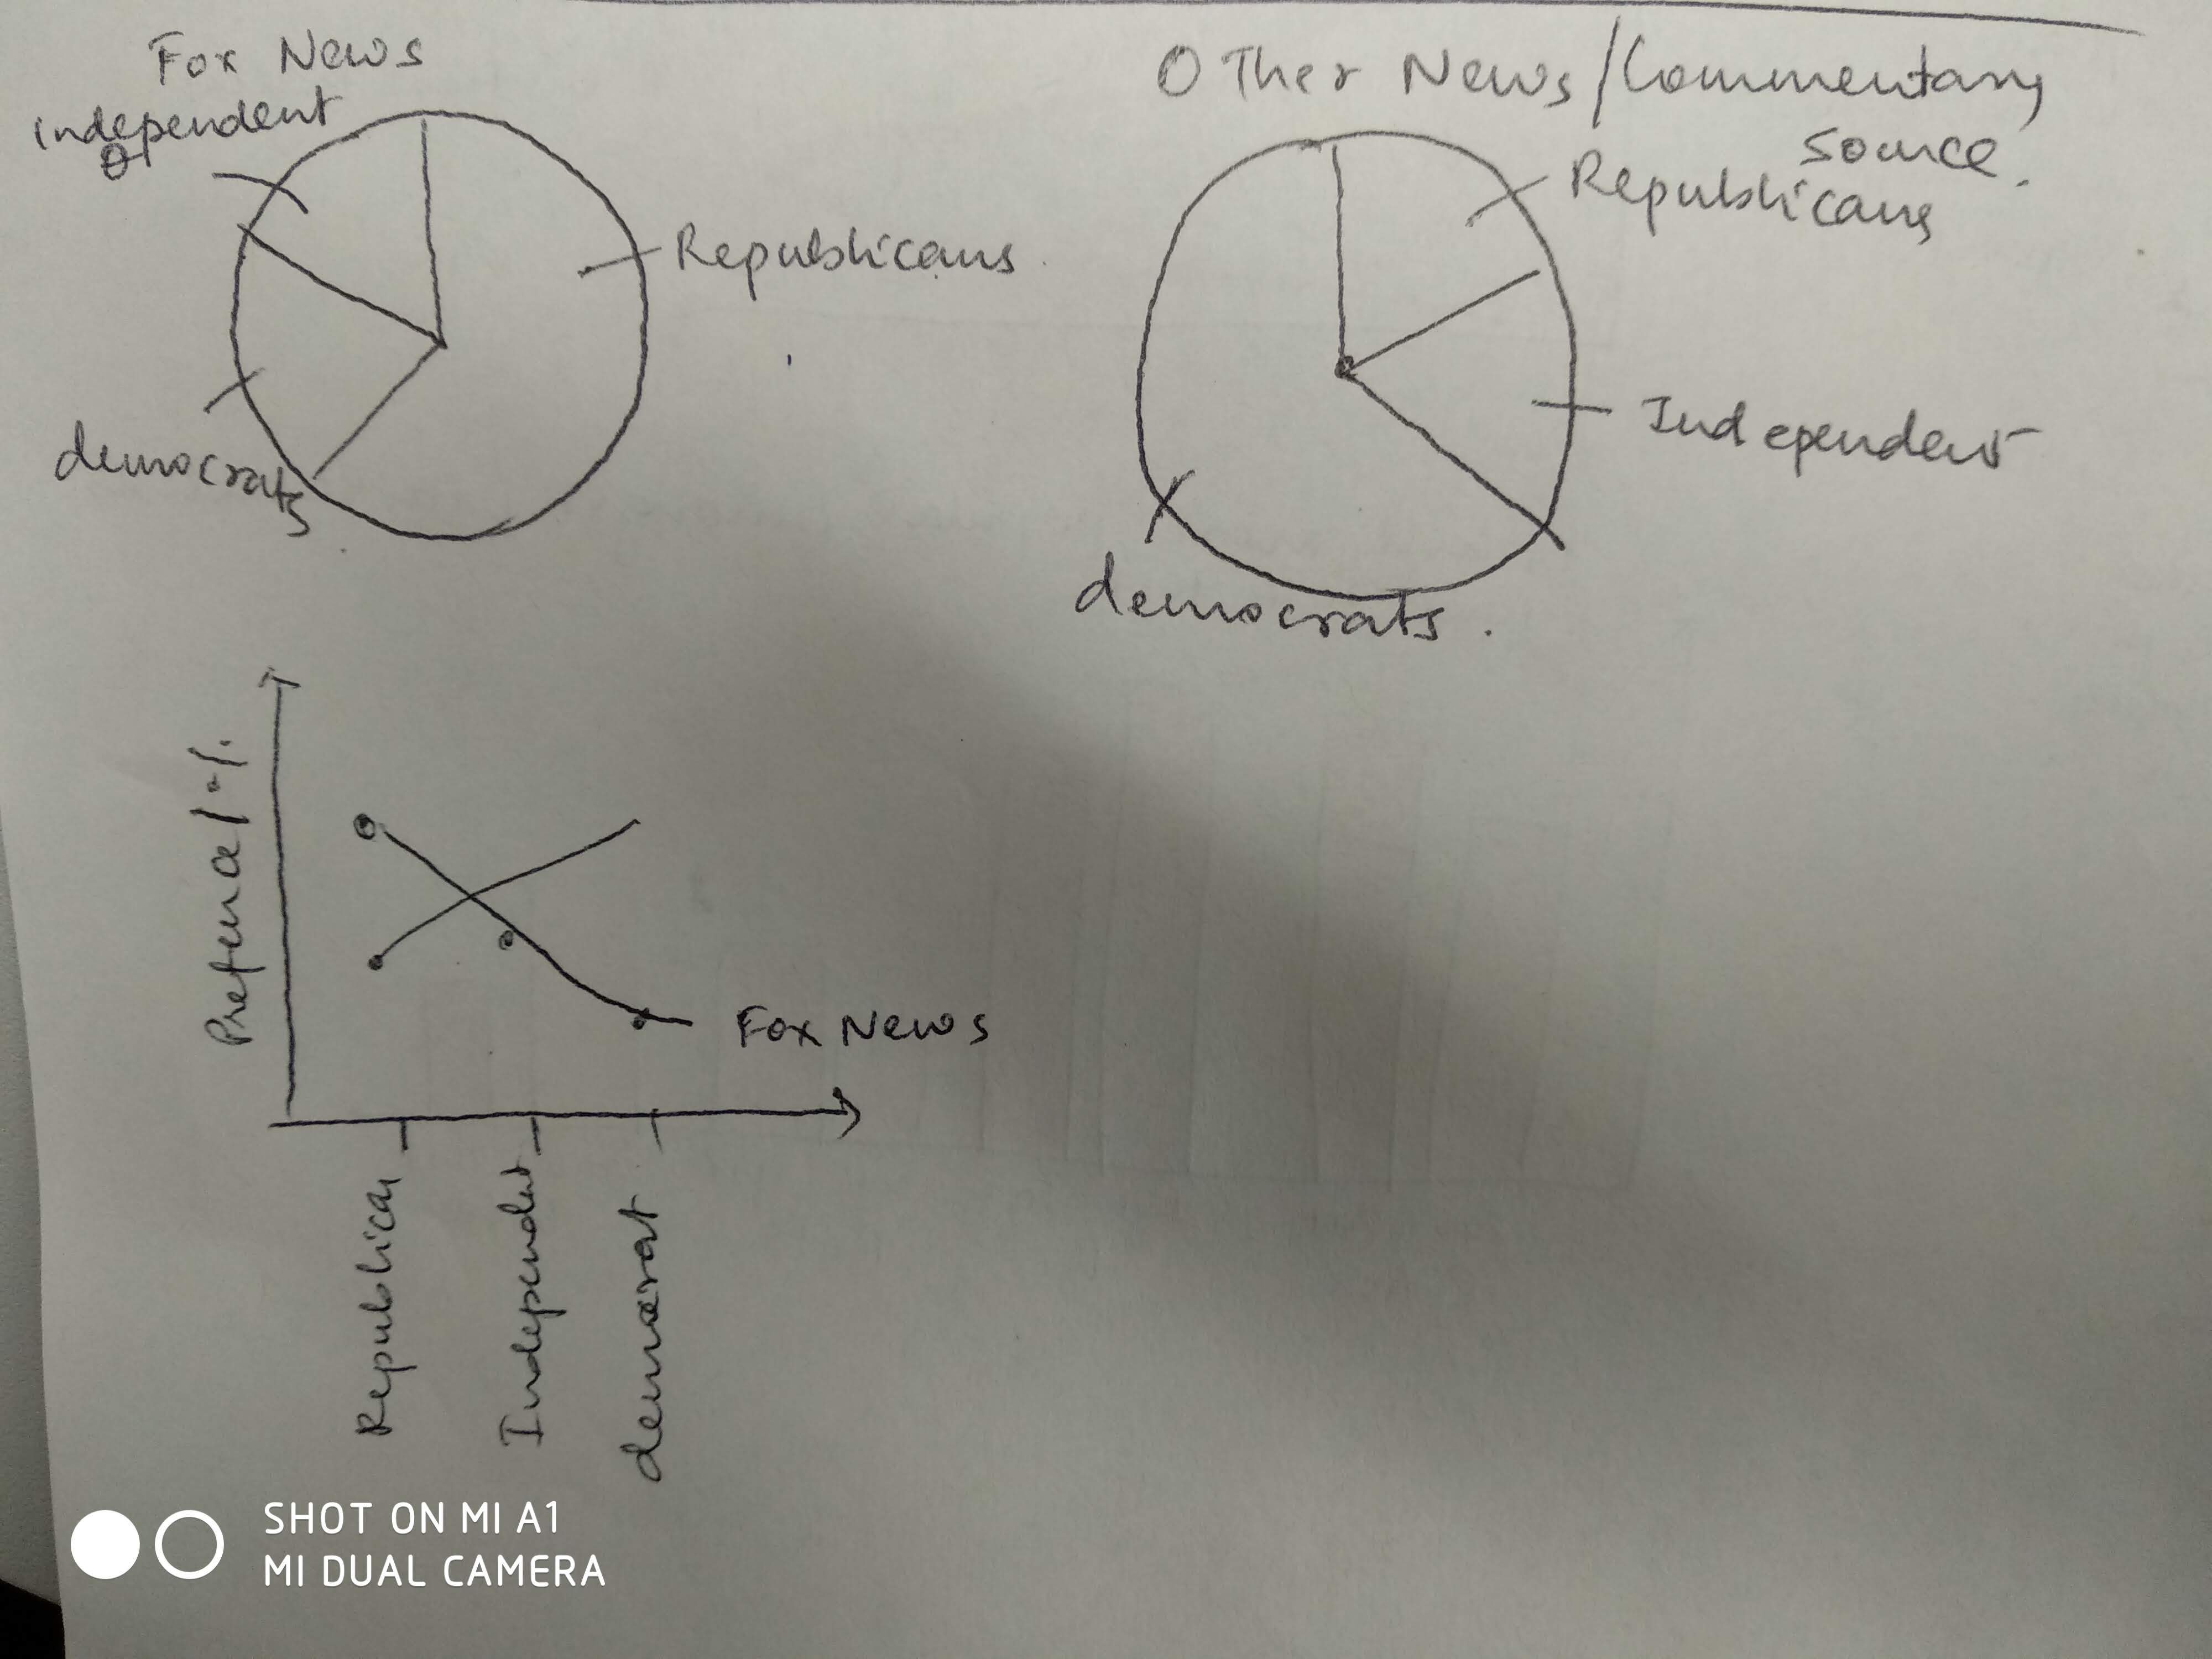 Fox News
independent
Republicans
democrats
OTher News/Commentary
source.
Republicans
Independent
democrats.
Fox News
Republican
Independent
democrat
SHOT ON MI A1
MI DUAL CAMERA